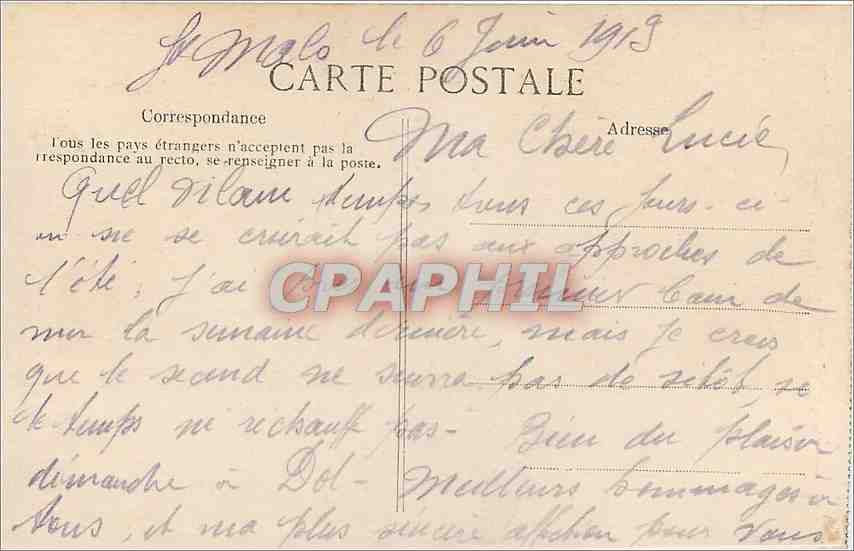 St Malo le 6 Juin 1919
CARTE POSTALE
Correspondance
Adresse
Tous les pays étrangers n'acceptent pas la
rrespondance au recto, se renseigner à la poste.
Ma Chère Lucie,
Quel vilain temps tous ces jours-ci
on ne se croirait pas aux approches de
l'été; j'ai pris mon premier bain de
CPAPHIL
mer la semaine dernière, mais je crois
que le second ne suivra pas de sitôt, si
le temps ne réchauffe pas - Bien du plaisir
dimanche à Dol - Meilleurs hommages à
tous, et ma plus sincère affection pour vous